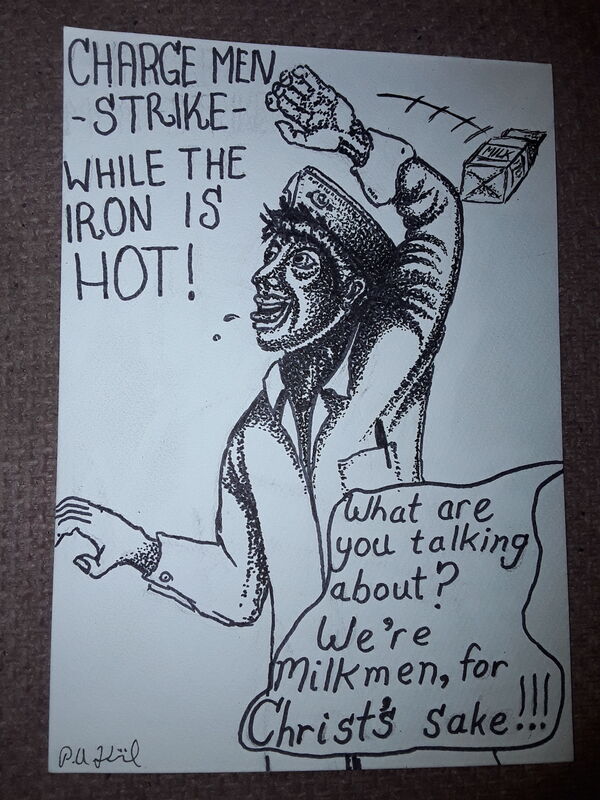 CHARGE MEN
-STRIKE-
WHILE THE
IRON IS
HOT!
MILK
What are
you talking
about?
We're
Milkmen, for
Christ's sake!!!
P.A